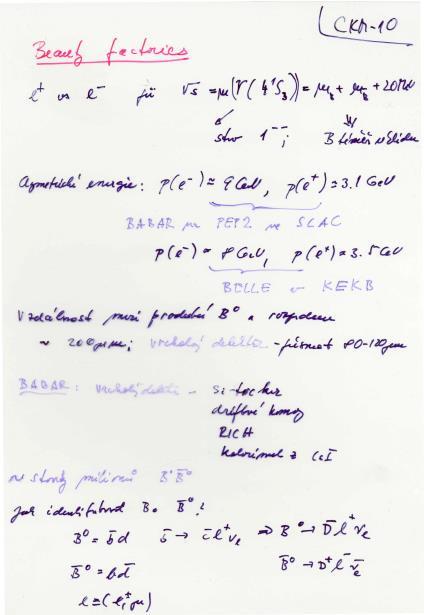 CKM-10
Beauty factories
e⁺ vs e⁻ při √s = μ(Υ(4¹S₃)) = μ_B + μ_B̄ + 20 MeV
stav 1⁻⁻; B téměř v klidu
Asymetrické energie: p(e⁻) ≈ 9 GeV, p(e⁺) = 3.1 GeV
BABAR na PEP2 ve SLAC
p(e⁻) ≈ 8 GeV, p(e⁺) = 3.5 GeV
BELLE v KEKB
Vzdálnost mezi produkcí B⁰ a rozpadem
~ 200 μm; vrcholový detektor - přesnost 80-120 μm
BABAR: vrcholový detektor - Si-tracker
driftové komory
RICH
kalorimetr z CsI
stovky milionů B⁰B̄⁰
Jak identifikovat B₀ B̄⁰?
B⁰ = b̄d b̄ → c̄l⁺ν_e ⇒ B⁰ → D̄l⁺ν_e
B̄⁰ = bd̄ B̄⁰ → D⁺l⁻ν̄_e
l = (e, μ)